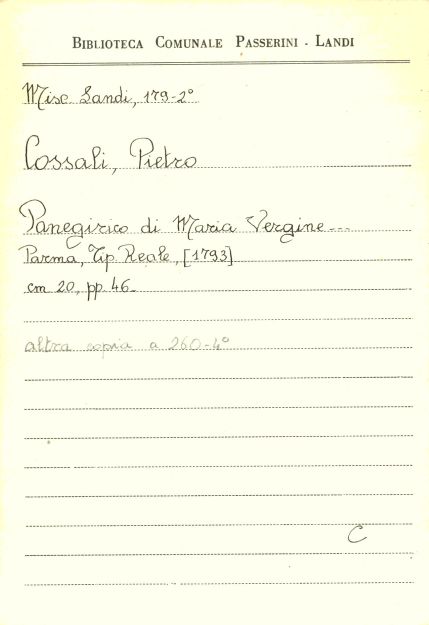 BIBLIOTECA COMUNALE PASSERINI - LANDI
Misc. Landi, 179-2°
Cossali, Pietro
Panegirico di Maria Vergine...
Parma, Tip. Reale, [1793]
cm 20, pp. 46.
altra copia a 260-4°
C